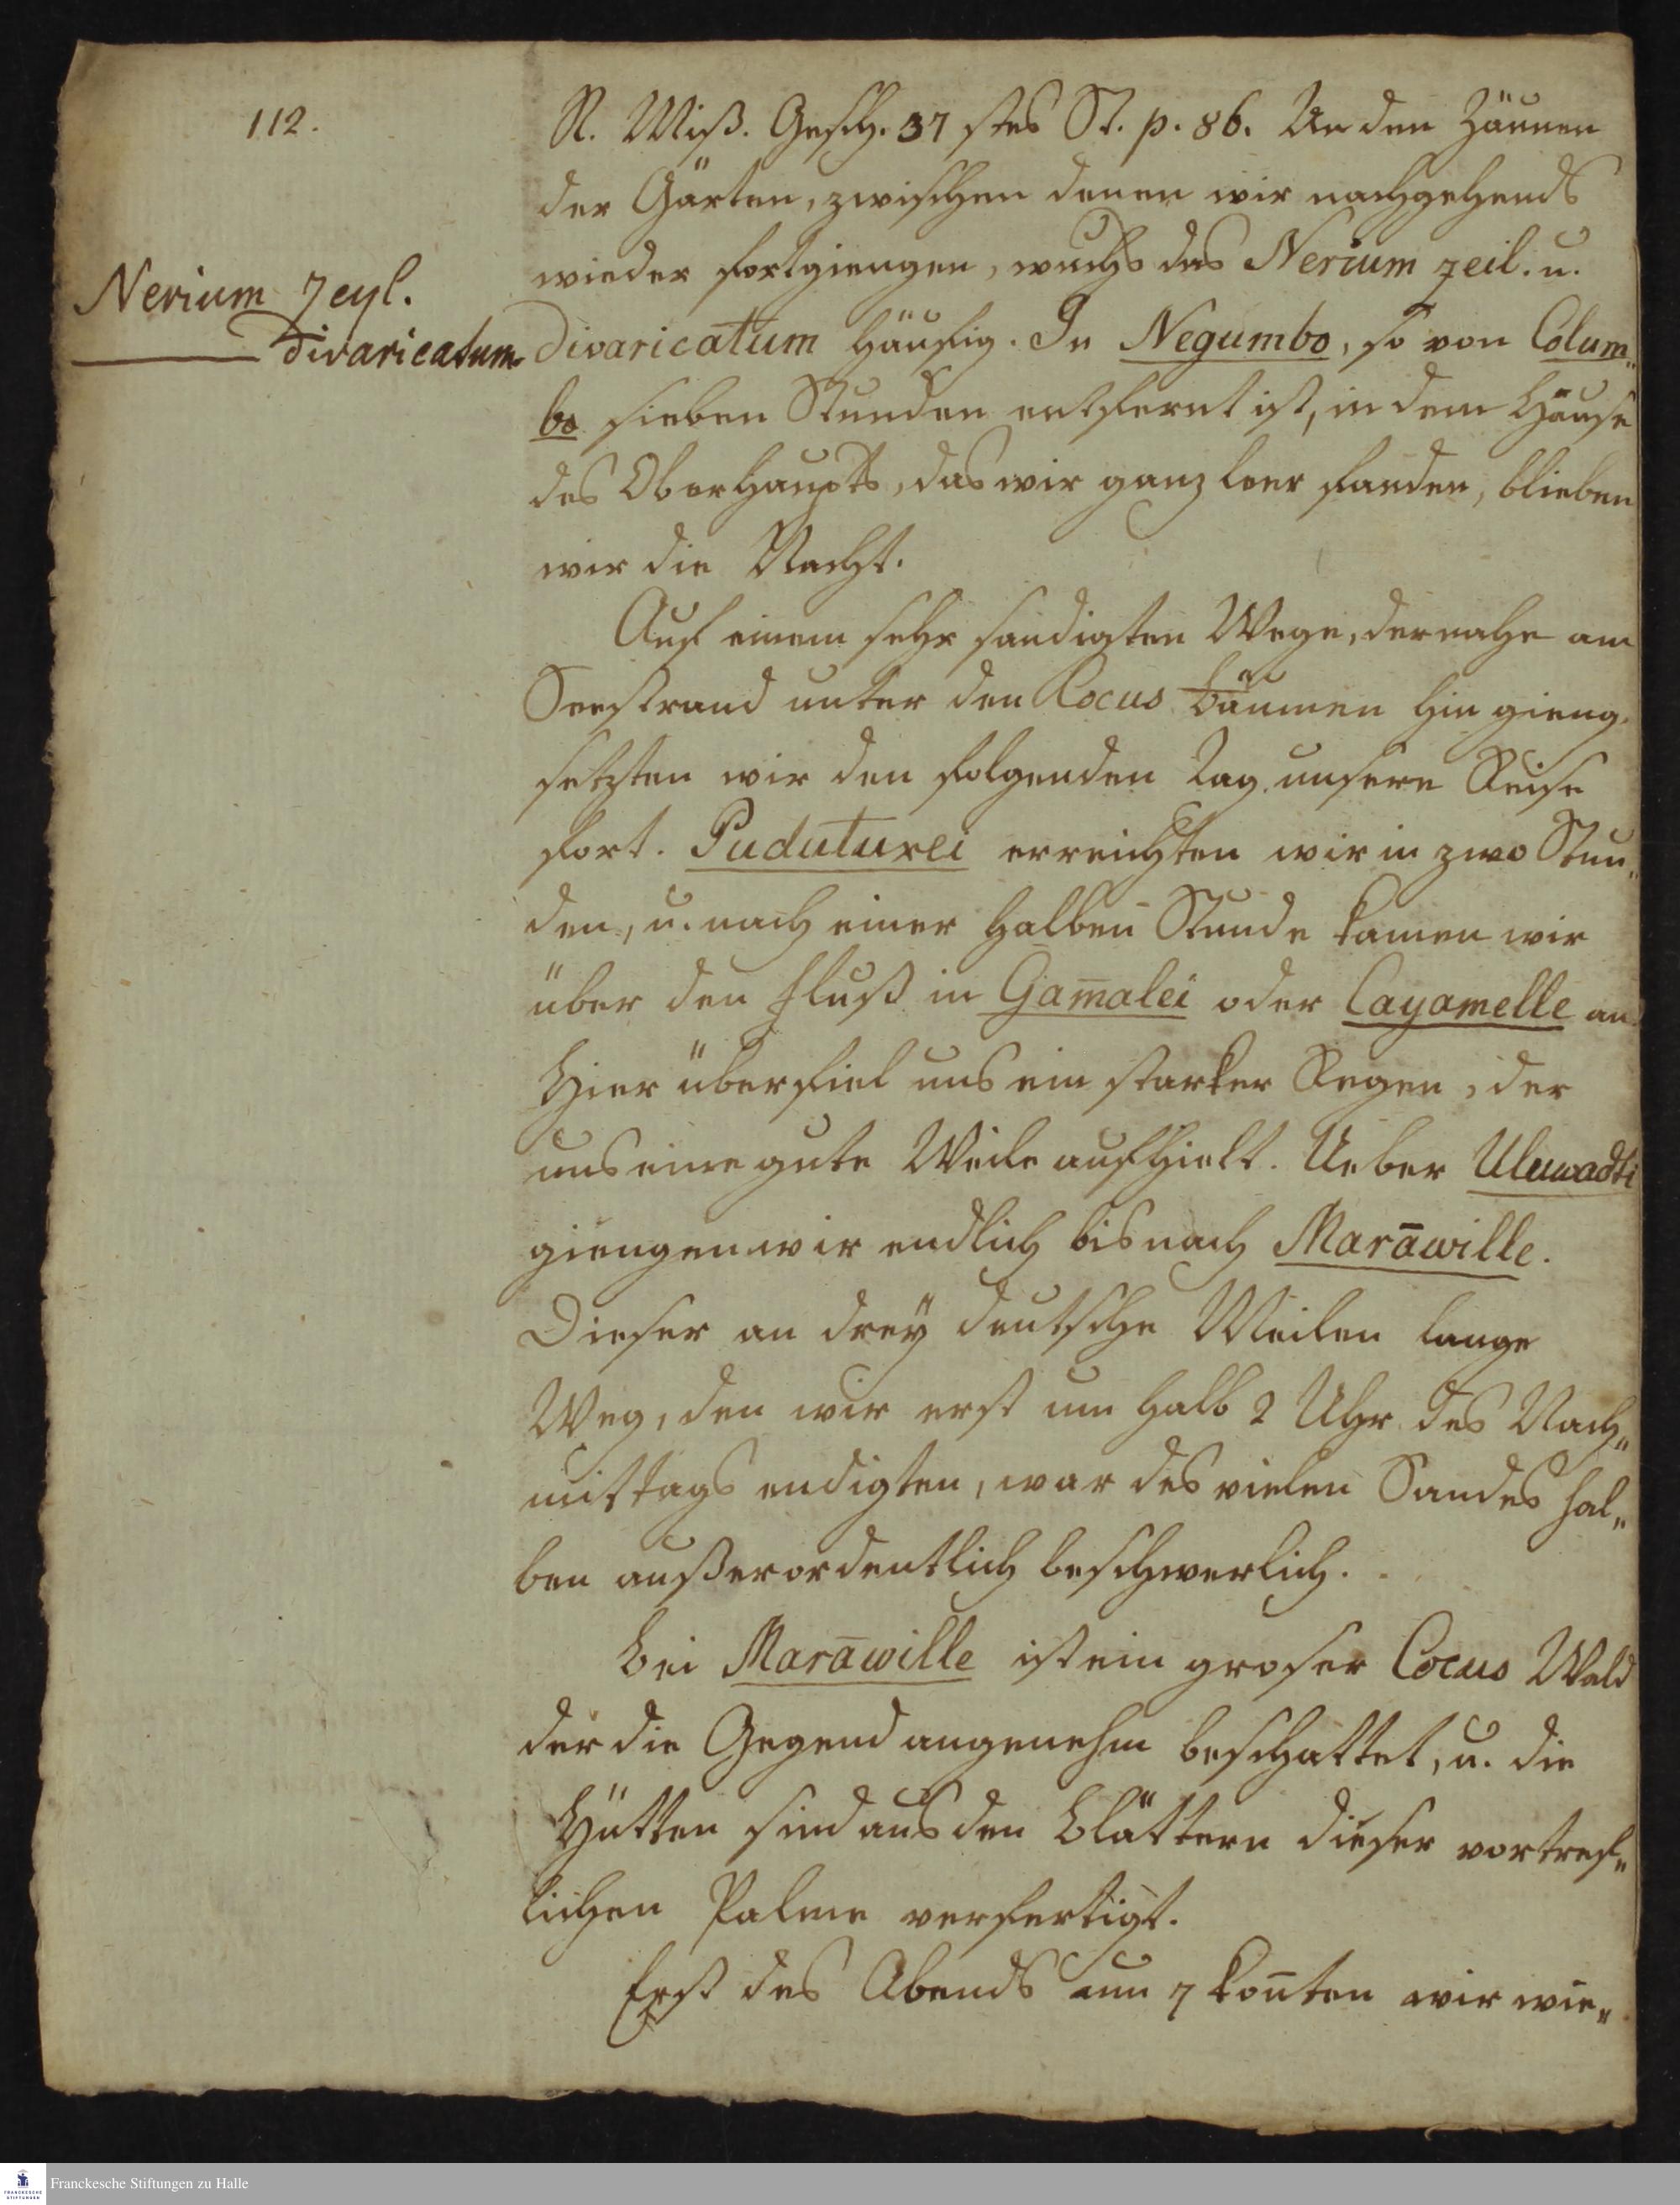 112.
N. Miß. Gesch. 37 stes St. p. 86. An den Zäunen
der Gärten, zwischen denen wir nachgehends
wieder fortgiengen, wuchs das Nerium zeil. u.
Nerium Zeyl.
divaricatum
divaricatum häufig. In Negumbo, so von Colum„
bo sieben Stunden entfernt ist, in dem Hause
des Oberhaupts, das wir ganz leer fanden, blieben
wir die Nacht.
Auf einem sehr sandigten Wege, der nahe am
Seestrand unter den Cocus bäumen hin gieng,
setzten wir den folgenden Tag unsere Reise
fort. Puduturei erreichten wir in zwo Stun„
den, u. nach einer halben Stunde kamen wir
über den Fluß in Gam̄alei oder Cayamelle an
Hier überfiel uns ein starker Regen, der
uns eine gute Weile aufhielt. Ueber Uluwadti
giengen wir endlich bis nach Marāwille.
Dieser an dreÿ deutsche Meilen lange
Weg, den wir erst um halb 2 Uhr des Nach„
mittags endigten, war des vielen Sandes hal„
ben außerordentlich beschwerlich.
Bei Marāwille ist ein groser Cocus Wald
der die Gegend angenehm beschattet, u. die
Hütten sind aus den Blättern dieser vortref„
lichen Palme verfertigt.
Erst des Abends um 7 kon̄ten wir wie„
Franckesche Stiftungen zu Halle
FRANCKESCHE
STIFTUNGEN